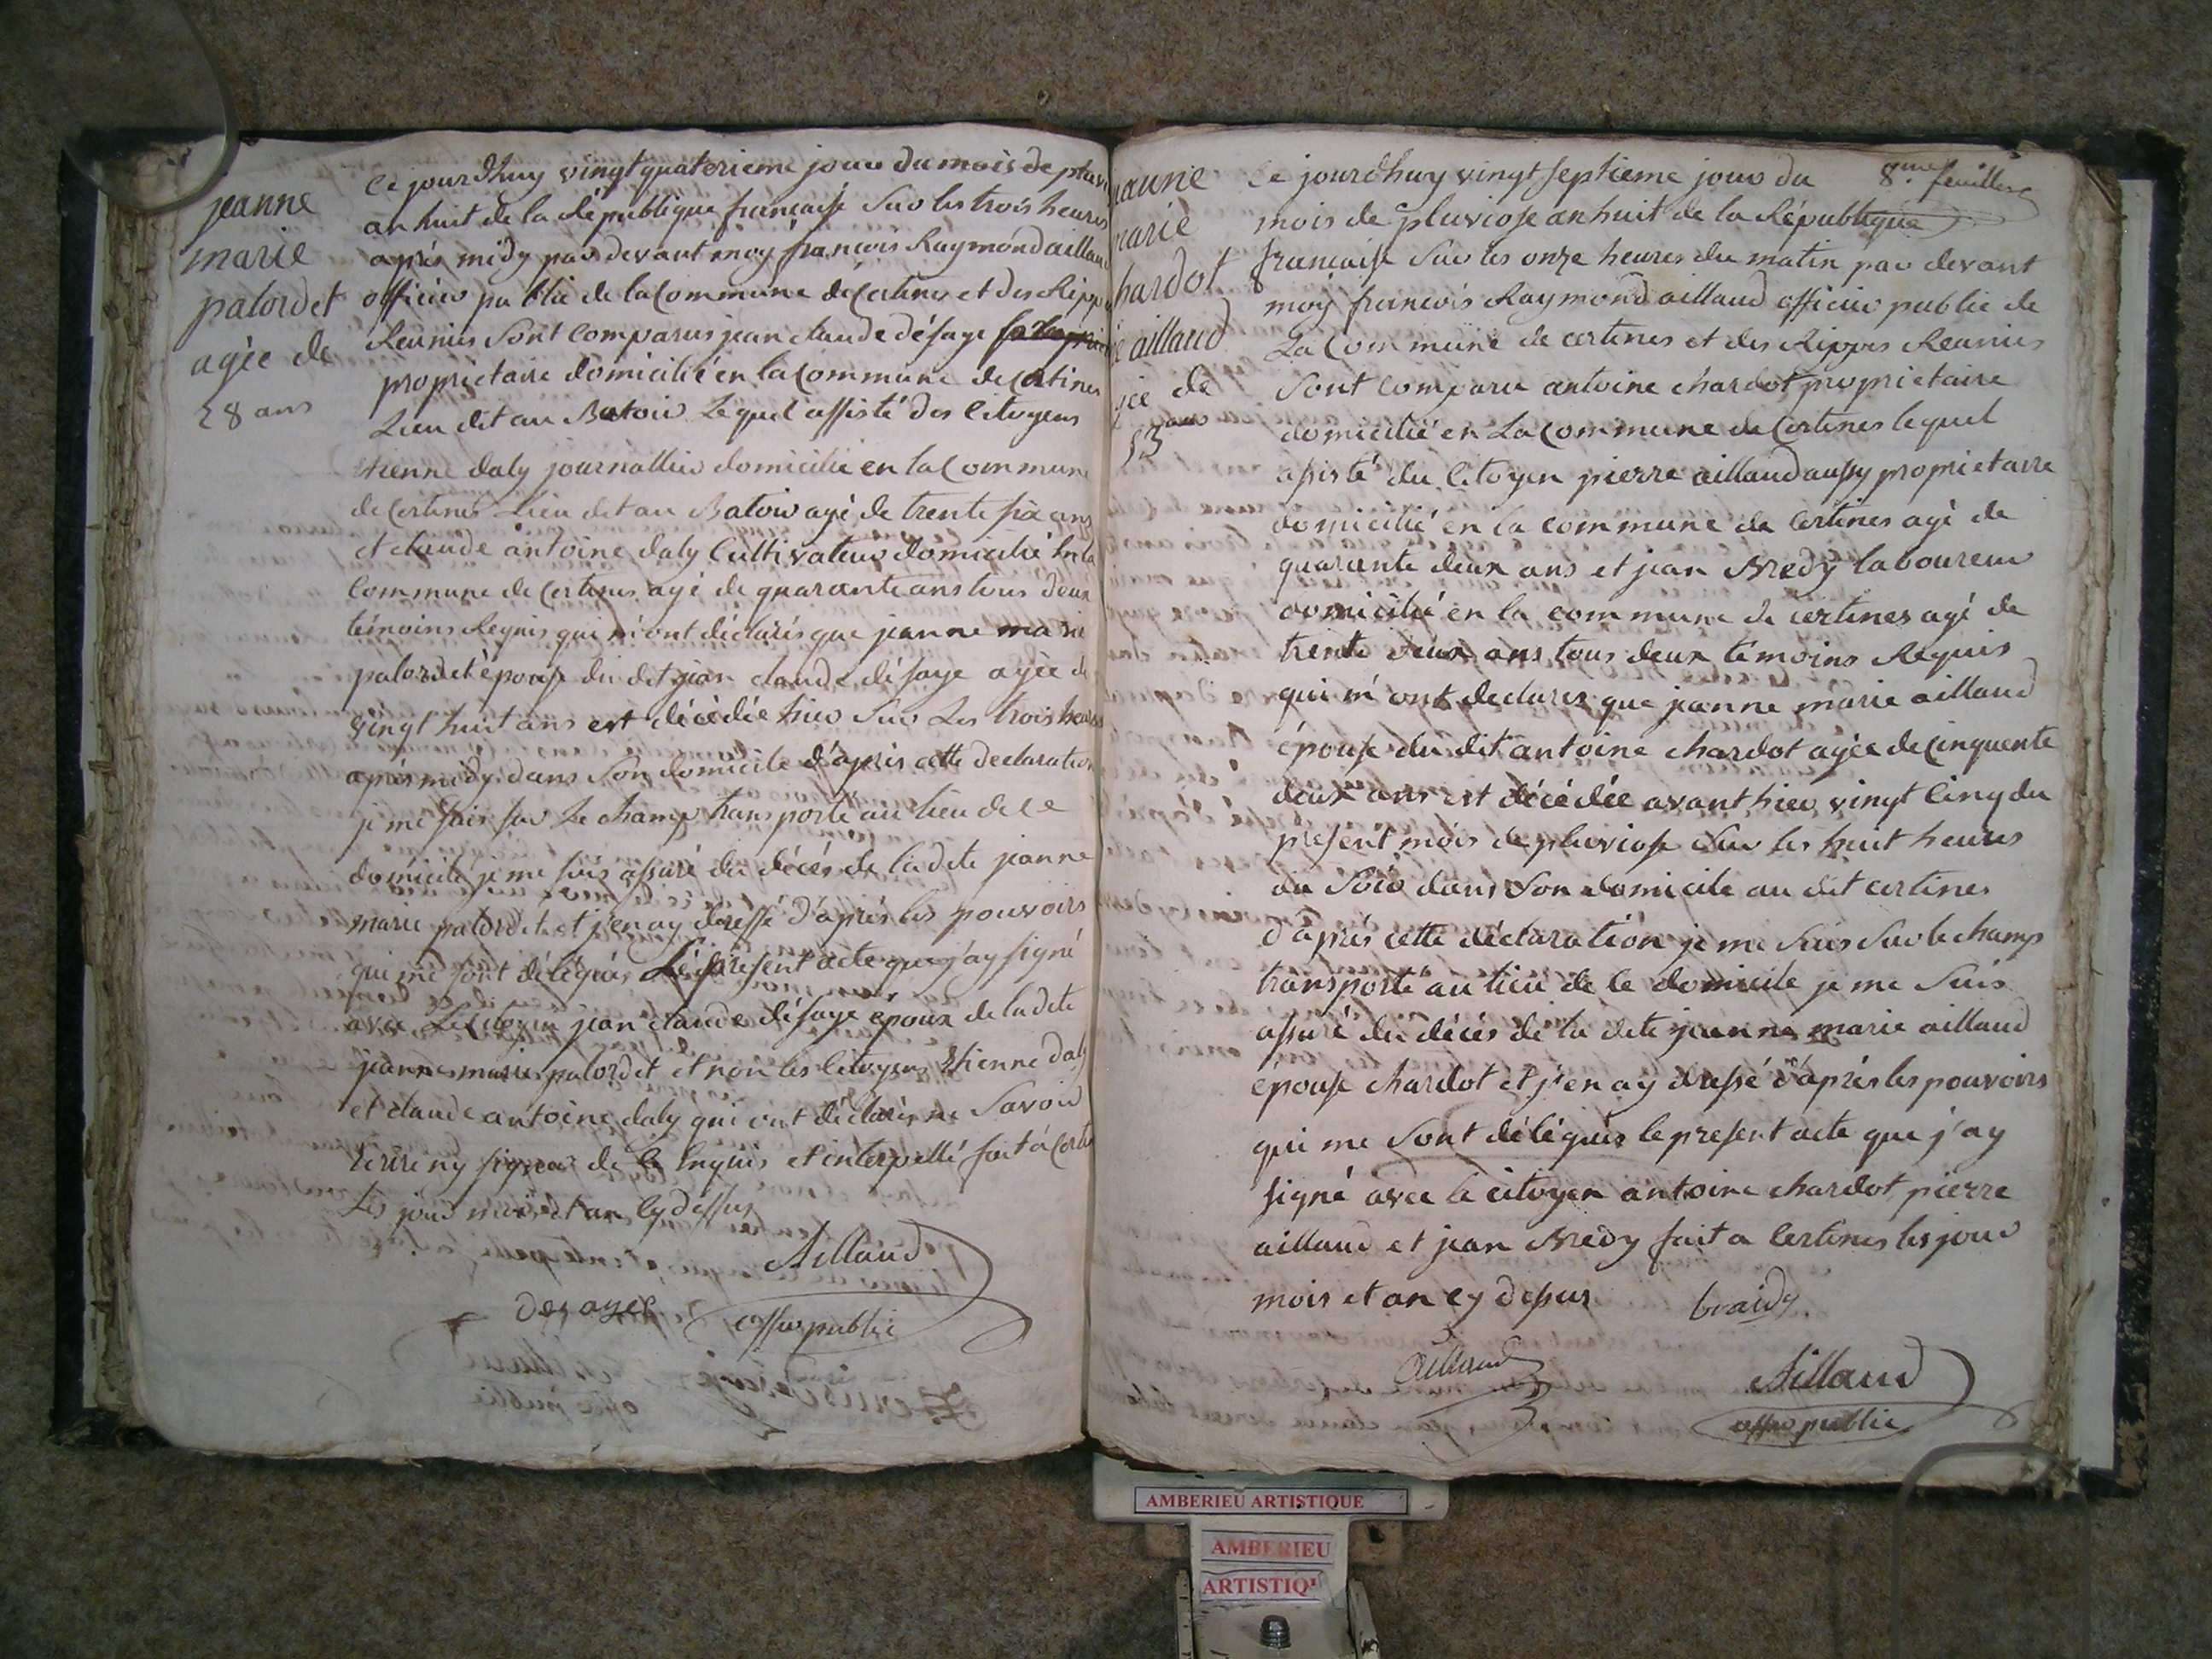 jeanne
marie
palordet
agée de
28 ans
Ce jourdhuy vingt quaterieme jour du mois de pluvi
an huit de la République française Sur les trois heures
après midy par devant moy françois Raymond aillaud
officier public de la Commune de Certines et des Ripp
Reunies Sont Comparus jean claude désaye
propriétaire domicilié en la Commune de Certines
Lieu dit au Batoir Lequel assisté des Citoyens
étienne daly journallier domicilié en la Commune
de Certines Lieu dit au Batoir agé de trente six ans
et claude antoine daly Cultivateur domicilié En la
Commune de Certines agé de quarante ans tous deux
témoins Requis qui m'ont déclarés que jeanne marie
palordet épouse du dit jean claude désaye agée de
vingt huit ans est décédée hier Sur Les trois heures
après midy dans Son domicile d'après cette declaration
je me suis sur Le champ transporté au lieu de ce
domicile je me suis assuré du décés de ladite jeanne
marie palordet et j'en ay dressé d'après les pouvoirs
qui me sont délégués Le présent acte que j'ay signé
avec Le Citoyen jean claude désaye époux de ladite
jeanne marie palordet et non les Citoyens Etienne daly
et claude antoine daly qui ont déclarés ne Savoir
Ecrire ny signer de ce Enquis et interpellé fait à Certi
Les jour mois et an Cy dessus
Aillaud
desayes
offier public
jeanne
marie
chardot
née aillaud
agée de
53 ans
8eme feuillet
Ce jourdhuy vingt septieme jour du
mois de pluviose an huit de la République
francaise Sur les onze heures du matin par devant
moy francois Raymond aillaud officier public de
La Commune de certines et des Rippes Reunies
Sont comparu antoine chardot propriétaire
domicilié en La Commune de Certines lequel
assisté du Citoyen pierre aillaud aussy propriétaire
domicilié en la commune de Certines agé de
quarante deux ans et jean Bredy laboureur
domicilié en la commune de certines agé de
trente deux ans tous deux témoins Requis
qui m'ont declares que jeanne marie aillaud
épouse du dit antoine chardot agée de cinquente
deux ans est décédée avant hier vingt Cinq du
present mois de pluviose Sur les huit heures
du Soir dans Son domicile au dit certines
d'après cette déclaration je me Suis Sur le champ
transporté au lieu de ce domicile je me Suis
assuré du décés de la dite jeanne marie aillaud
épouse chardot et j'en ay dressé d'après les pouvoirs
qui me Sont délégués le present acte que j'ay
signé avec le citoyen antoine chardot pierre
aillaud et jean Bredy fait a Certines les jour
mois et an cy dessus
braidy
Aillaud
Aillaud
offier public
AMBERIEU ARTISTIQUE
AMBERIEU
ARTISTIQ